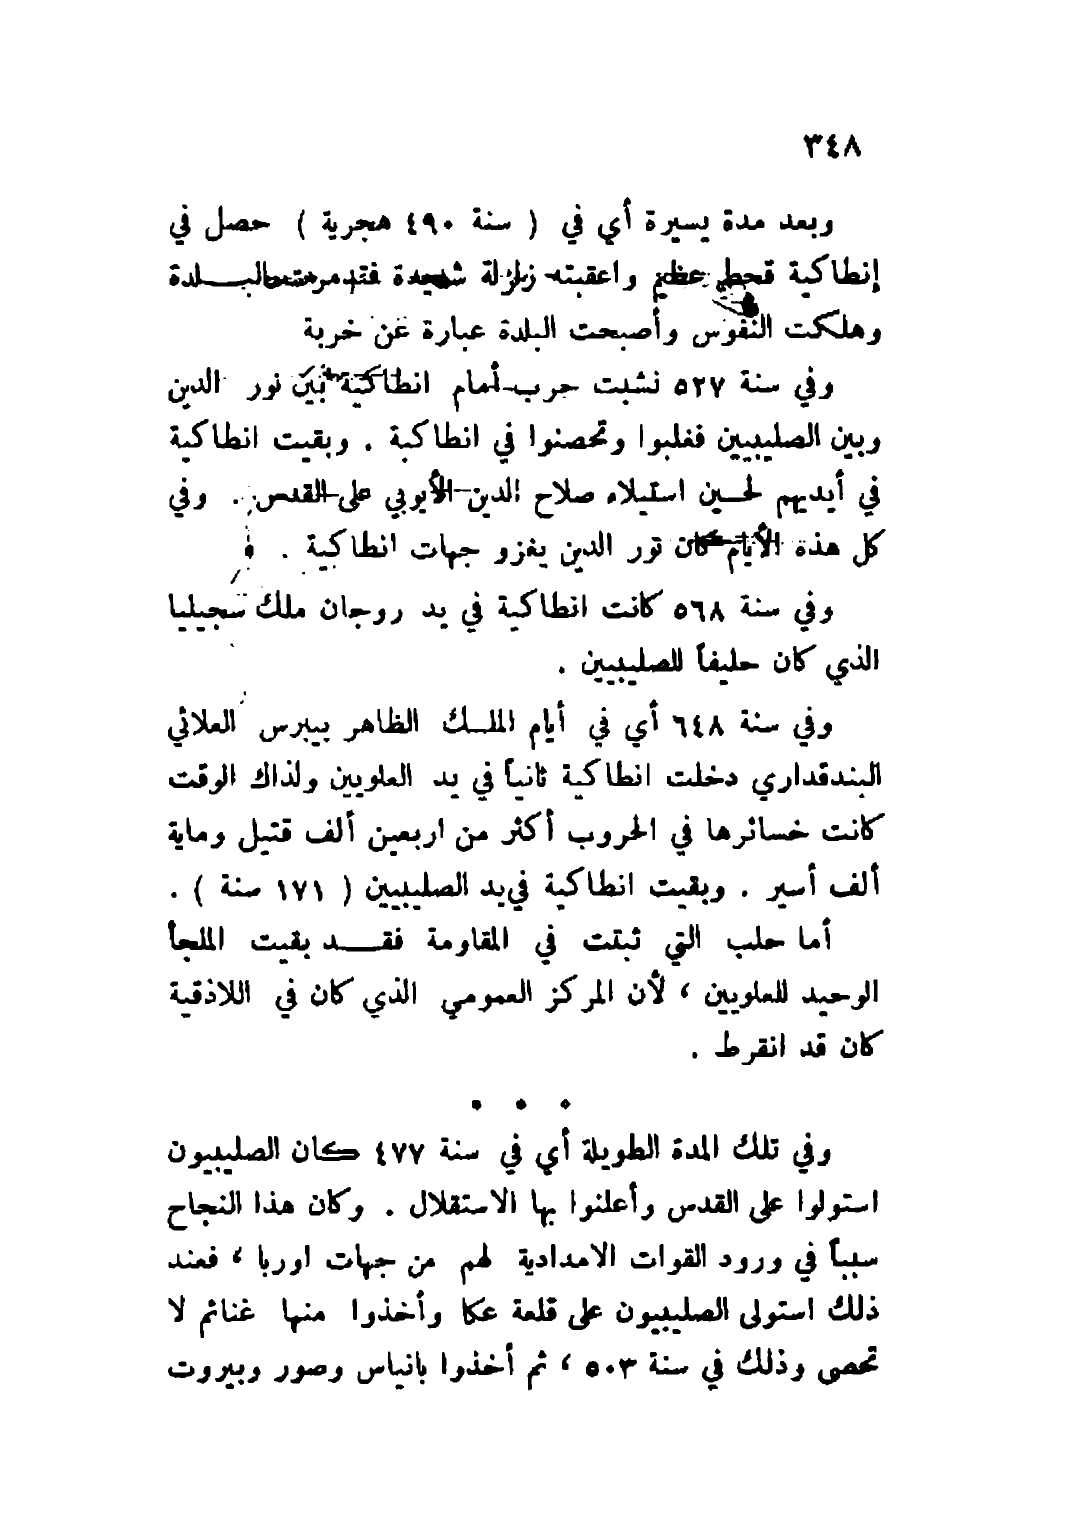 ٣٤٨
وبعد مدة يسيرة أي في ( سنة ٤٩٠ هجرية ) حصل في
إنطاكية قحط عظيم واعقبته زلزلة شديدة فتدمرت البلدة
وهلكت النفوس وأصبحت البلدة عبارة عن خربة
وفي سنة ٥٢٧ نشبت حرب أمام انطاكية بين نور الدين
وبين الصليبيين فغلبوا وتحصنوا في انطاكية . وبقيت انطاكية
في أيديهم لحين استيلاء صلاح الدين الأيوبي على القدس . وفي
كل هذه الأيام كان نور الدين يغزو جهات انطاكية .
وفي سنة ٥٦٨ كانت انطاكية في يد روجان ملك سجيليا
الذي كان حليفاً للصليبيين .
وفي سنة ٦٤٨ أي في أيام الملك الظاهر بيبرس العلائي
البندقداري دخلت انطاكية ثانياً في يد العلويين ولذاك الوقت
كانت خسائرها في الحروب أكثر من اربعين ألف قتيل وماية
ألف أسير . وبقيت انطاكية في يد الصليبيين ( ١٧١ سنة ) .
أما حلب التي ثبتت في المقاومة فقد بقيت الملجأ
الوحيد للعلويين ، لأن المركز العمومي الذي كان في اللاذقية
كان قد انقرط .
• • •
وفي تلك المدة الطويلة أي في سنة ٤٧٧ كان الصليبيون
استولوا على القدس وأعلنوا بها الاستقلال . وكان هذا النجاح
سبباً في ورود القوات الامدادية لهم من جهات اوربا ، فعند
ذلك استولى الصليبيون على قلعة عكا وأخذوا منها غنائم لا
تحصى وذلك في سنة ٥٠٣ ، ثم أخذوا بانياس وصور وبيروت